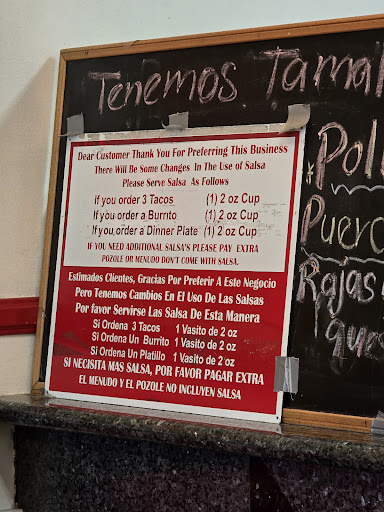 Tenemos Tamal
Dear Customer Thank You For Preferring This Business
There Will Be Some Changes In The Use of Salsa
Please Serve Salsa As Follows
If you order 3 Tacos (1) 2 oz Cup
If you order a Burrito (1) 2 oz Cup
If you order a Dinner Plate (1) 2 oz Cup
IF YOU NEED ADDITIONAL SALSA'S PLEASE PAY EXTRA
POZOLE OR MENUDO DON'T COME WITH SALSA.
Estimados Clientes, Gracias Por Preferir A Este Negocio
Pero Tenemos Cambios En El Uso De Las Salsas
Por favor Servirse Las Salsa De Esta Manera
Si Ordena 3 Tacos 1 Vasito de 2 oz
Si Ordena Un Burrito 1 Vasito de 2 oz
Si Ordena Un Platillo 1 Vasito de 2 oz
SI NECISITA MAS SALSA, POR FAVOR PAGAR EXTRA
EL MENUDO Y EL POZOLE NO INCLUYEN SALSA
Pol
Puerc
Rajas
que